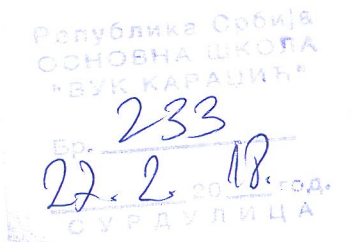 Република Србија
ОСНОВНА ШКОЛА
"ВУК КАРАЏИЋ"
Бр. 233
27. 2. 2018. год.
СУРДУЛИЦА